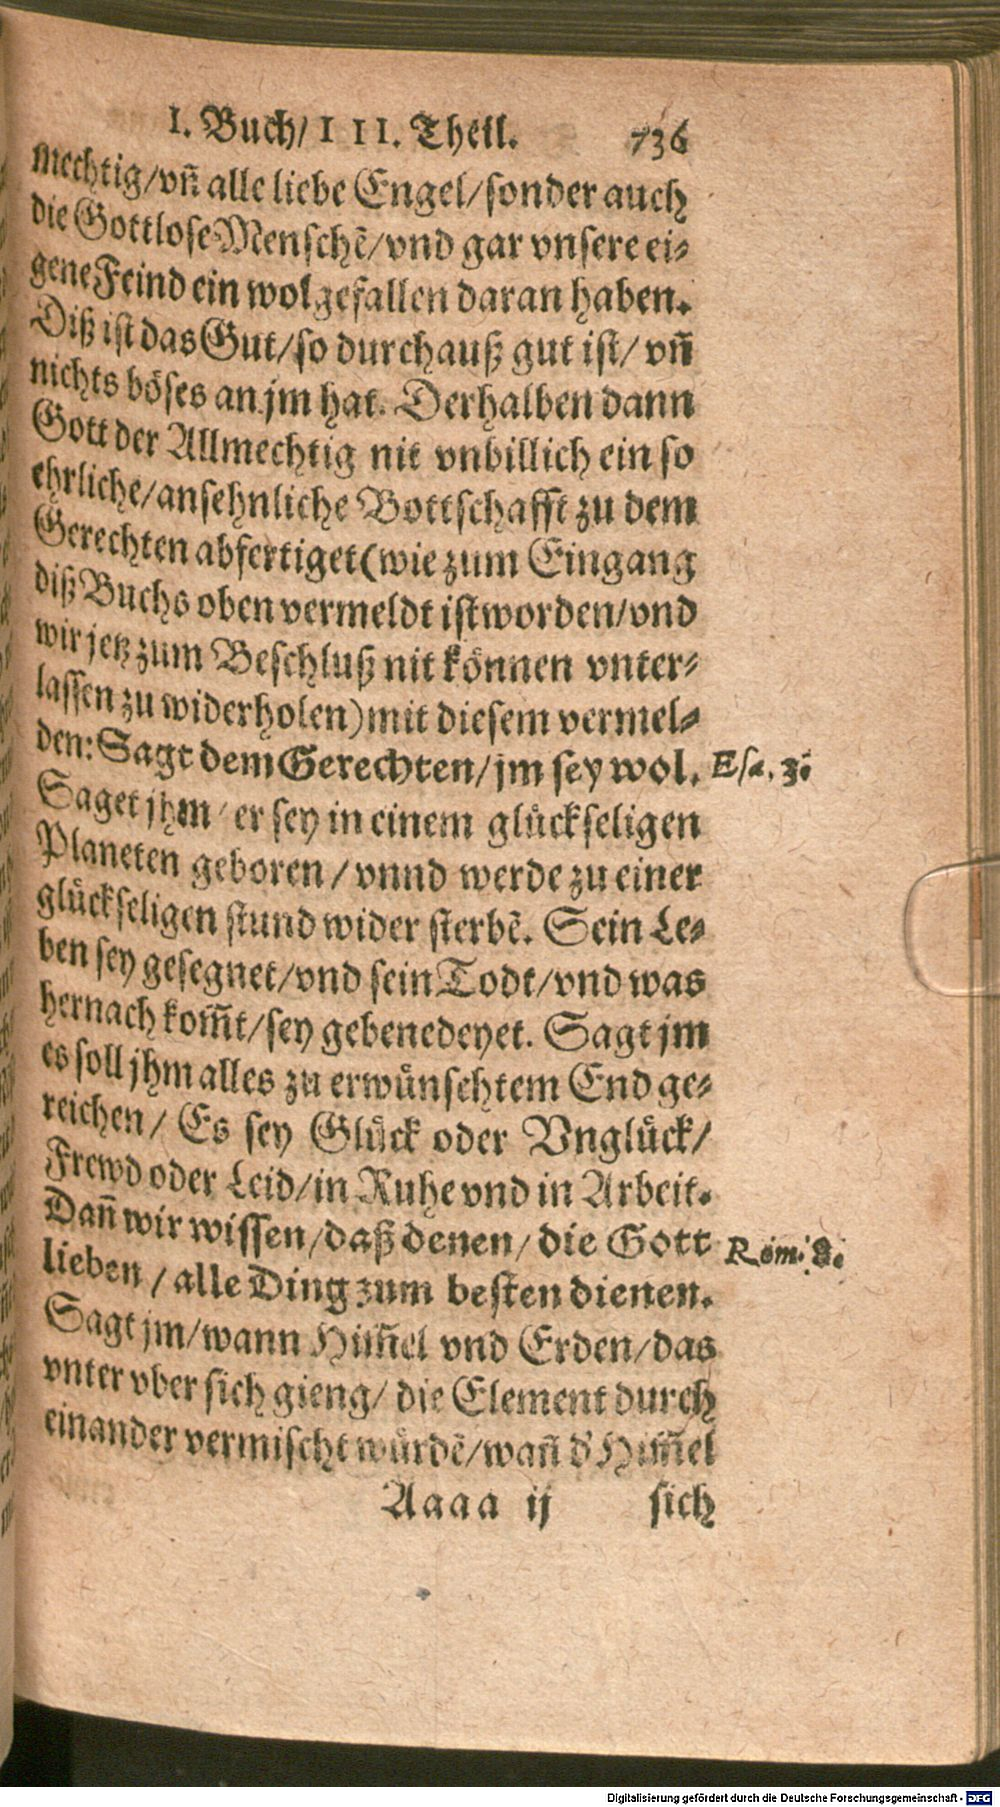 I. Buch/ III. Theil. 736
mechtig/ vn̄ alle liebe Engel/ sonder auch
die Gottlose Menschē/ vnd gar vnsere ei⸗
gene Feind ein wolgefallen daran haben.
Diß ist das Gut/ so durchauß gut ist/ vn̄
nichts böses an jm hat. Derhalben dann
Gott der Allmechtig nit vnbillich ein so
ehrliche/ ansehnliche Bottschafft zu dem
Gerechten abfertiget (wie zum Eingang
diß Buchs oben vermeldt ist worden/ vnd
wir jetz zum Beschluß nit können vnter⸗
lassen zu widerholen) mit diesem vermel⸗
den: Sagt dem Gerechten/ jm sey wol. Esa. 3.
Saget jhm/ er sey in einem glückseligen
Planeten geboren/ vnnd werde zu einer
glückseligen stund wider sterbē. Sein Le⸗
ben sey gesegnet/ vnd sein Todt/ vnd was
hernach kom̄t/ sey gebenedeyet. Sagt jm
es soll jhm alles zu erwünsehtem End ge⸗
reichen/ Es sey Glück oder Vnglück/
Frewd oder Leid/ in Ruhe vnd in Arbeit.
Dan̄ wir wissen/ daß denen/ die Gott Rom. 8.
lieben/ alle Ding zum besten dienen.
Sagt jm/ wann Him̄el vnd Erden/ das
vnter vber sich gieng/ die Element durch
einander vermischt würdē/ wan̄ d' Him̄el
Aaaa ij sich
Digitalisierung gefördert durch die Deutsche Forschungsgemeinschaft - DFG